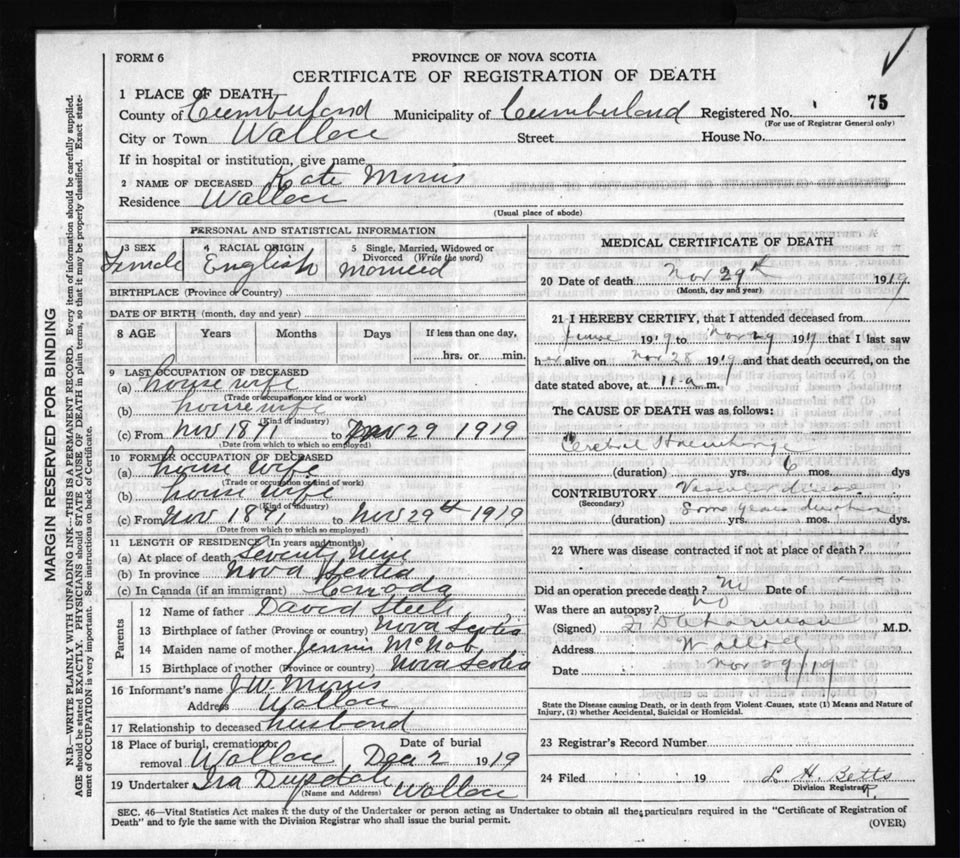 FORM 6
PROVINCE OF NOVA SCOTIA
CERTIFICATE OF REGISTRATION OF DEATH
75
1 PLACE OF DEATH
County of Cumberland Municipality of Cumberland Registered No.
(For use of Registrar General only)
City or Town Wallace Street House No.
If in hospital or institution, give name
2 NAME OF DECEASED Kate
Residence Wallace
(Usual place of abode)
PERSONAL AND STATISTICAL INFORMATION
3 SEX 4 RACIAL ORIGIN 5 Single, Married, Widowed or Divorced (Write the word)
Female English married
BIRTHPLACE (Province or Country)
DATE OF BIRTH (month, day and year)
8 AGE Years Months Days If less than one day,
hrs. or min.
9 LAST OCCUPATION OF DECEASED
(a) house wife
(Trade or occupation or kind or work)
(b) house wife
(Kind of industry)
(c) From Nov 1891 to Nov 29 1919
(Date from which to which so employed)
10 FORMER OCCUPATION OF DECEASED
(a) house wife
(Trade or occupation or kind of work)
(b) house wife
(Kind of industry)
(c) From Nov 1891 to Nov 29th 1919
(Date from which to which so employed)
11 LENGTH OF RESIDENCE (In years and months)
(a) At place of death Seventy
(b) In province Nova Scotia
(c) In Canada (if an immigrant) Canada
Parents
12 Name of father David Steele
13 Birthplace of father (Province or country) Nova Scotia
14 Maiden name of mother Jennie McNab
15 Birthplace of mother (Province or country) Nova Scotia
16 Informant's name J.W.
Address Wallace
17 Relationship to deceased husband
18 Place of burial, cremation or removal Wallace Date of burial Dec 2 1919
19 Undertaker Ira Wallace
(Name and Address)
MEDICAL CERTIFICATE OF DEATH
20 Date of death Nov 29th 1919
(Month, day and year)
21 I HEREBY CERTIFY, that I attended deceased from
1919 to Nov 29 1919 that I last saw
her alive on Nov 28 1919 and that death occurred, on the
date stated above, at 11 a m.
The CAUSE OF DEATH was as follows:
Cerebral Haemorrhage
(duration) yrs. 6 mos. dys
CONTRIBUTORY Vascular disease
(Secondary) Some years duration
(duration) yrs. mos. dys.
22 Where was disease contracted if not at place of death?
Did an operation precede death? no Date of
Was there an autopsy? no
(Signed) M.D.
Address Wallace
Date Nov 29/19
State the Disease causing Death, or in death from Violent Causes, state (1) Means and Nature of
Injury, (2) whether Accidental, Suicidal or Homicidal.
23 Registrar's Record Number
24 Filed 19 L. H. Betts
Division Registrar
SEC. 46—Vital Statistics Act makes it the duty of the Undertaker or person acting as Undertaker to obtain all the particulars required in the "Certificate of Registration of
Death" and to fyle the same with the Division Registrar who shall issue the burial permit.
(OVER)
MARGIN RESERVED FOR BINDING
N.B.—WRITE PLAINLY WITH UNFADING INK—THIS IS A PERMANENT RECORD. Every item of information should be carefully supplied.
AGE should be stated EXACTLY. PHYSICIANS should STATE CAUSE OF DEATH in plain terms, so that it may be properly classified. Exact state-
ment of OCCUPATION is very important. See instructions on back of Certificate.